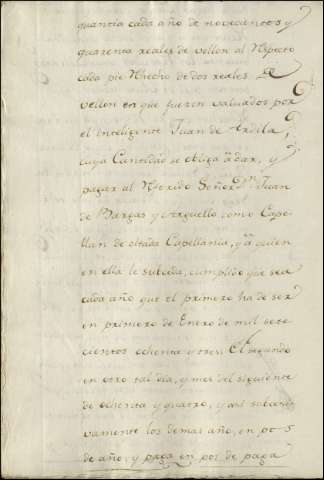 quantia cada año de novecientos y
quarenta reales de vellon al respecto
cada pie de dos reales de
vellon en que fueron valuados por
el inteligente Juan de Ardila,
cuya Cantidad se obliga â dar, y
pagar al referido Señor Dn. Juan
de Bargas y Arguello como Cape-
llan de citada Capellania, y â quien
en ella le subceda, cumplido que sea
cada año que el primero ha de ser
en primero de Enero de mil sete
cientos ochenta y tres: El segundo
en otro tal dia, y mes del siguiente
de ochenta y quatro, y asi subcesi-
vamente los demas año, en pos
de año, y paga en pos de paga